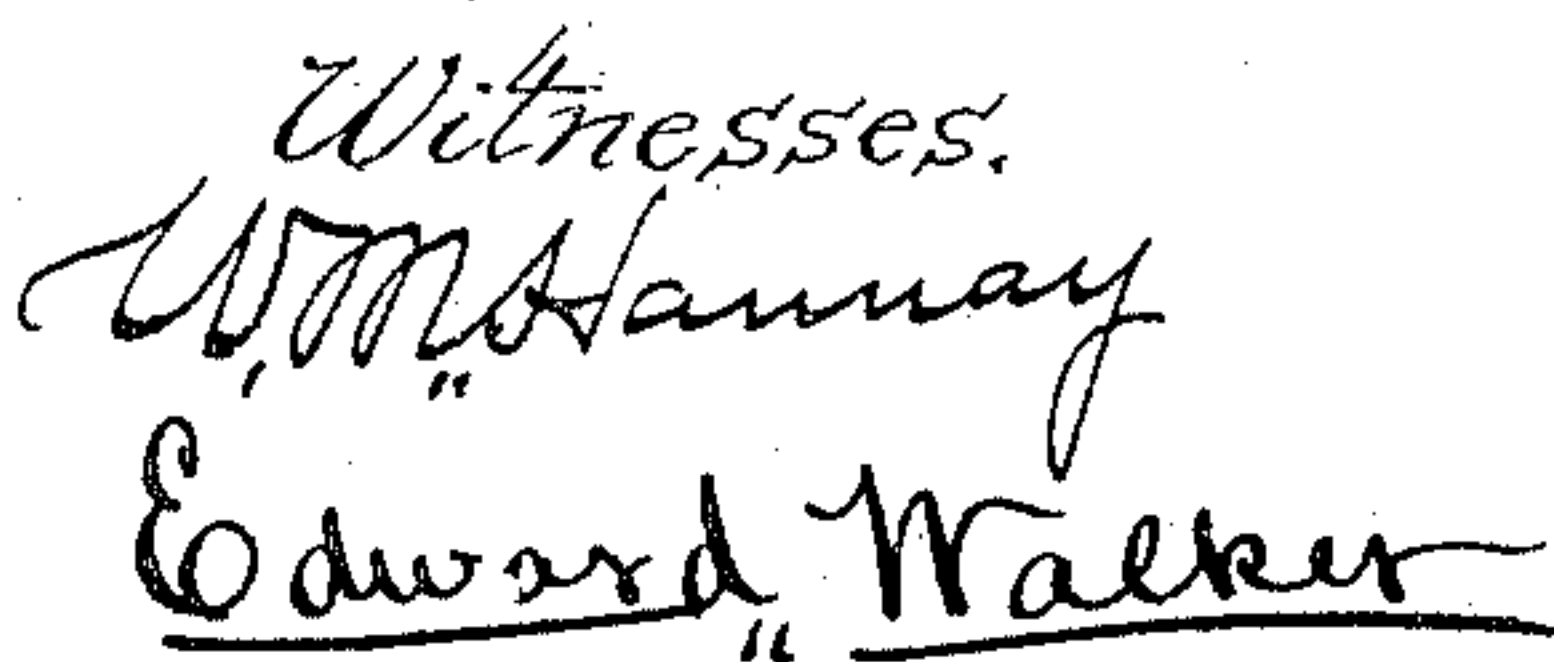 Witnesses.
W. M. Hannay
Edward Walker